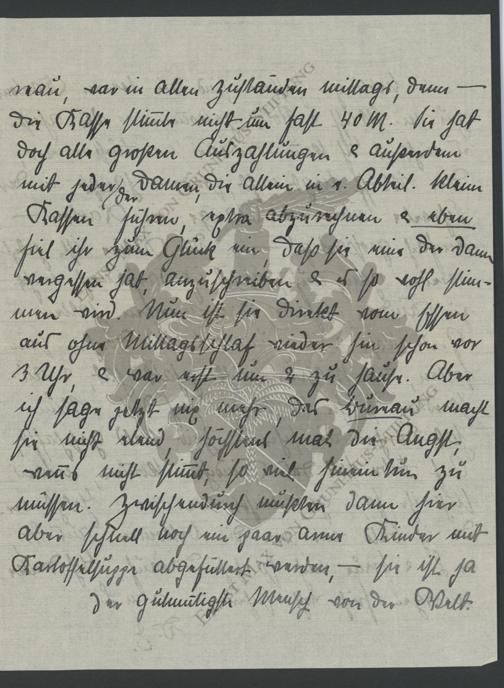 reau, war in allen Zuständen mittags, denn —
die Kasse stimmte nicht um fast 40 M. Sie hat
doch alle großen Auszahlungen & außerdem
mit jeder der Damen, die allein in r. Abteil. kleine
Kassen führen, extra abzurechnen & eben
fiel ihr zum Glück ein, daß sie eine der Damen
vergessen hat, anzuschreiben & es so wohl stim-
men wird. Nun ist sie direkt vom Essen
aus ohne Mittagsschlaf wieder hin schon vor
3 Uhr, & war erst um 2 zu Hause. Aber
ich sage jetzt nix mehr, das Bureau macht
sie nicht elend, höchstens mal die Angst,
wenns nicht stimmt, so viel hinein tun zu
müssen. Zwischendurch mußten dann hier
aber schnell noch ein paar arme Kinder mit
Kartoffelsuppe abgefüttert werden, — sie ist ja
der gütmütigste Mensch von der Welt.